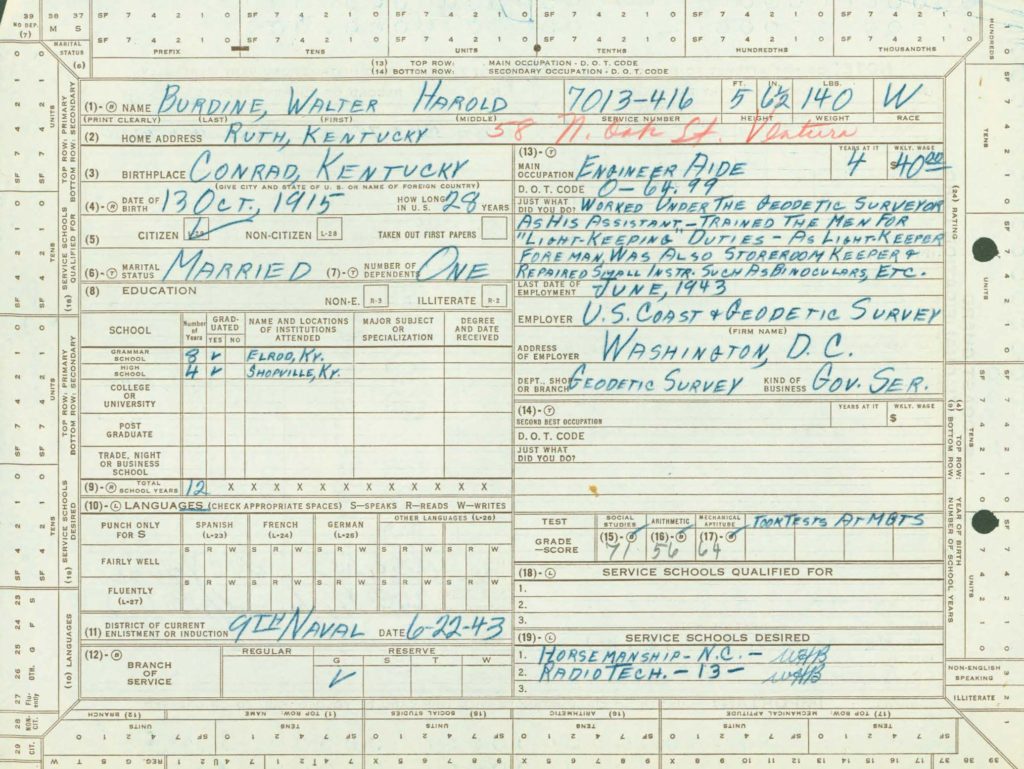 (13) TOP ROW: MAIN OCCUPATION - D. O. T. CODE
(14) BOTTOM ROW: SECONDARY OCCUPATION - D. O. T. CODE
PREFIX TENS UNITS TENTHS HUNDREDTHS THOUSANDTHS
(1)-Ⓡ NAME BURDINE, WALTER HAROLD 7013-416 5 6½ 140 W
(PRINT CLEARLY) (LAST) (FIRST) (MIDDLE) SERVICE NUMBER FT. IN. HEIGHT LBS. WEIGHT RACE
(2) HOME ADDRESS RUTH, KENTUCKY 58 N. Oak St. Ventura
(3) BIRTHPLACE CONRAD, KENTUCKY
(GIVE CITY AND STATE OF U. S. OR NAME OF FOREIGN COUNTRY)
(4)-Ⓡ DATE OF BIRTH 13 OCT., 1915 HOW LONG IN U.S. 28 YEARS
(5) CITIZEN NON-CITIZEN L-28 TAKEN OUT FIRST PAPERS
(6)-Ⓣ MARITAL STATUS MARRIED (7)-Ⓣ NUMBER OF DEPENDENTS ONE
(8) EDUCATION NON-E. R-3 ILLITERATE R-2
SCHOOL Number of Years GRADUATED YES NO NAME AND LOCATIONS OF INSTITUTIONS ATTENDED MAJOR SUBJECT OR SPECIALIZATION DEGREE AND DATE RECEIVED
GRAMMAR SCHOOL 8 ✓ ELROD, KY.
HIGH SCHOOL 4 ✓ SHOPVILLE, KY.
COLLEGE OR UNIVERSITY
POST GRADUATE
TRADE, NIGHT OR BUSINESS SCHOOL
(9)-Ⓡ TOTAL SCHOOL YEARS 12 X X X X X X X X X X X
(10)-Ⓛ LANGUAGES (CHECK APPROPRIATE SPACES) S—SPEAKS R—READS W—WRITES
PUNCH ONLY FOR S SPANISH (L-23) FRENCH (L-24) GERMAN (L-25) OTHER LANGUAGES (L-26)
FAIRLY WELL S R W S R W S R W S R W S R W
FLUENTLY (L-27) S R W S R W S R W S R W S R W
(11) DISTRICT OF CURRENT ENLISTMENT OR INDUCTION 9TH NAVAL DATE 6-22-43
(12)-Ⓡ BRANCH OF SERVICE REGULAR RESERVE
G S T W
✓
(13)-Ⓣ MAIN OCCUPATION ENGINEER AIDE YEARS AT IT 4 WKLY. WAGE $40.00
D. O. T. CODE 0-64.99
JUST WHAT DID YOU DO? WORKED UNDER THE GEODETIC SURVEYOR
AS HIS ASSISTANT - TRAINED THE MEN FOR
"LIGHT-KEEPING" DUTIES - AS LIGHT-KEEPER
FOREMAN, WAS ALSO STOREROOM KEEPER &
REPAIRED SMALL INSTR. SUCH AS BINOCULARS, ETC.
LAST DATE OF EMPLOYMENT JUNE, 1943
EMPLOYER U. S. COAST & GEODETIC SURVEY
(FIRM NAME)
ADDRESS OF EMPLOYER WASHINGTON, D. C.
DEPT., SHOP OR BRANCH GEODETIC SURVEY KIND OF BUSINESS GOV. SER.
(14)-Ⓣ SECOND BEST OCCUPATION YEARS AT IT WKLY. WAGE $
D. O. T. CODE
JUST WHAT DID YOU DO?
TEST SOCIAL STUDIES ARITHMETIC MECHANICAL APTITUDE TOOK TESTS AT MGTS
GRADE—SCORE (15) 71 (16) 56 (17) 64
(18)-Ⓛ SERVICE SCHOOLS QUALIFIED FOR
1.
2.
3.
(19)-Ⓛ SERVICE SCHOOLS DESIRED
1. HORSEMANSHIP - N.C. - WHB
2. RADIO TECH. - 13 - WHB
3.
NON-ENGLISH SPEAKING
ILLITERATE
(12) BRANCH (1) (TOP ROW) NAME (15) SOCIAL STUDIES (16) ARITHMETIC (17) TOP ROW: MECHANICAL APTITUDE